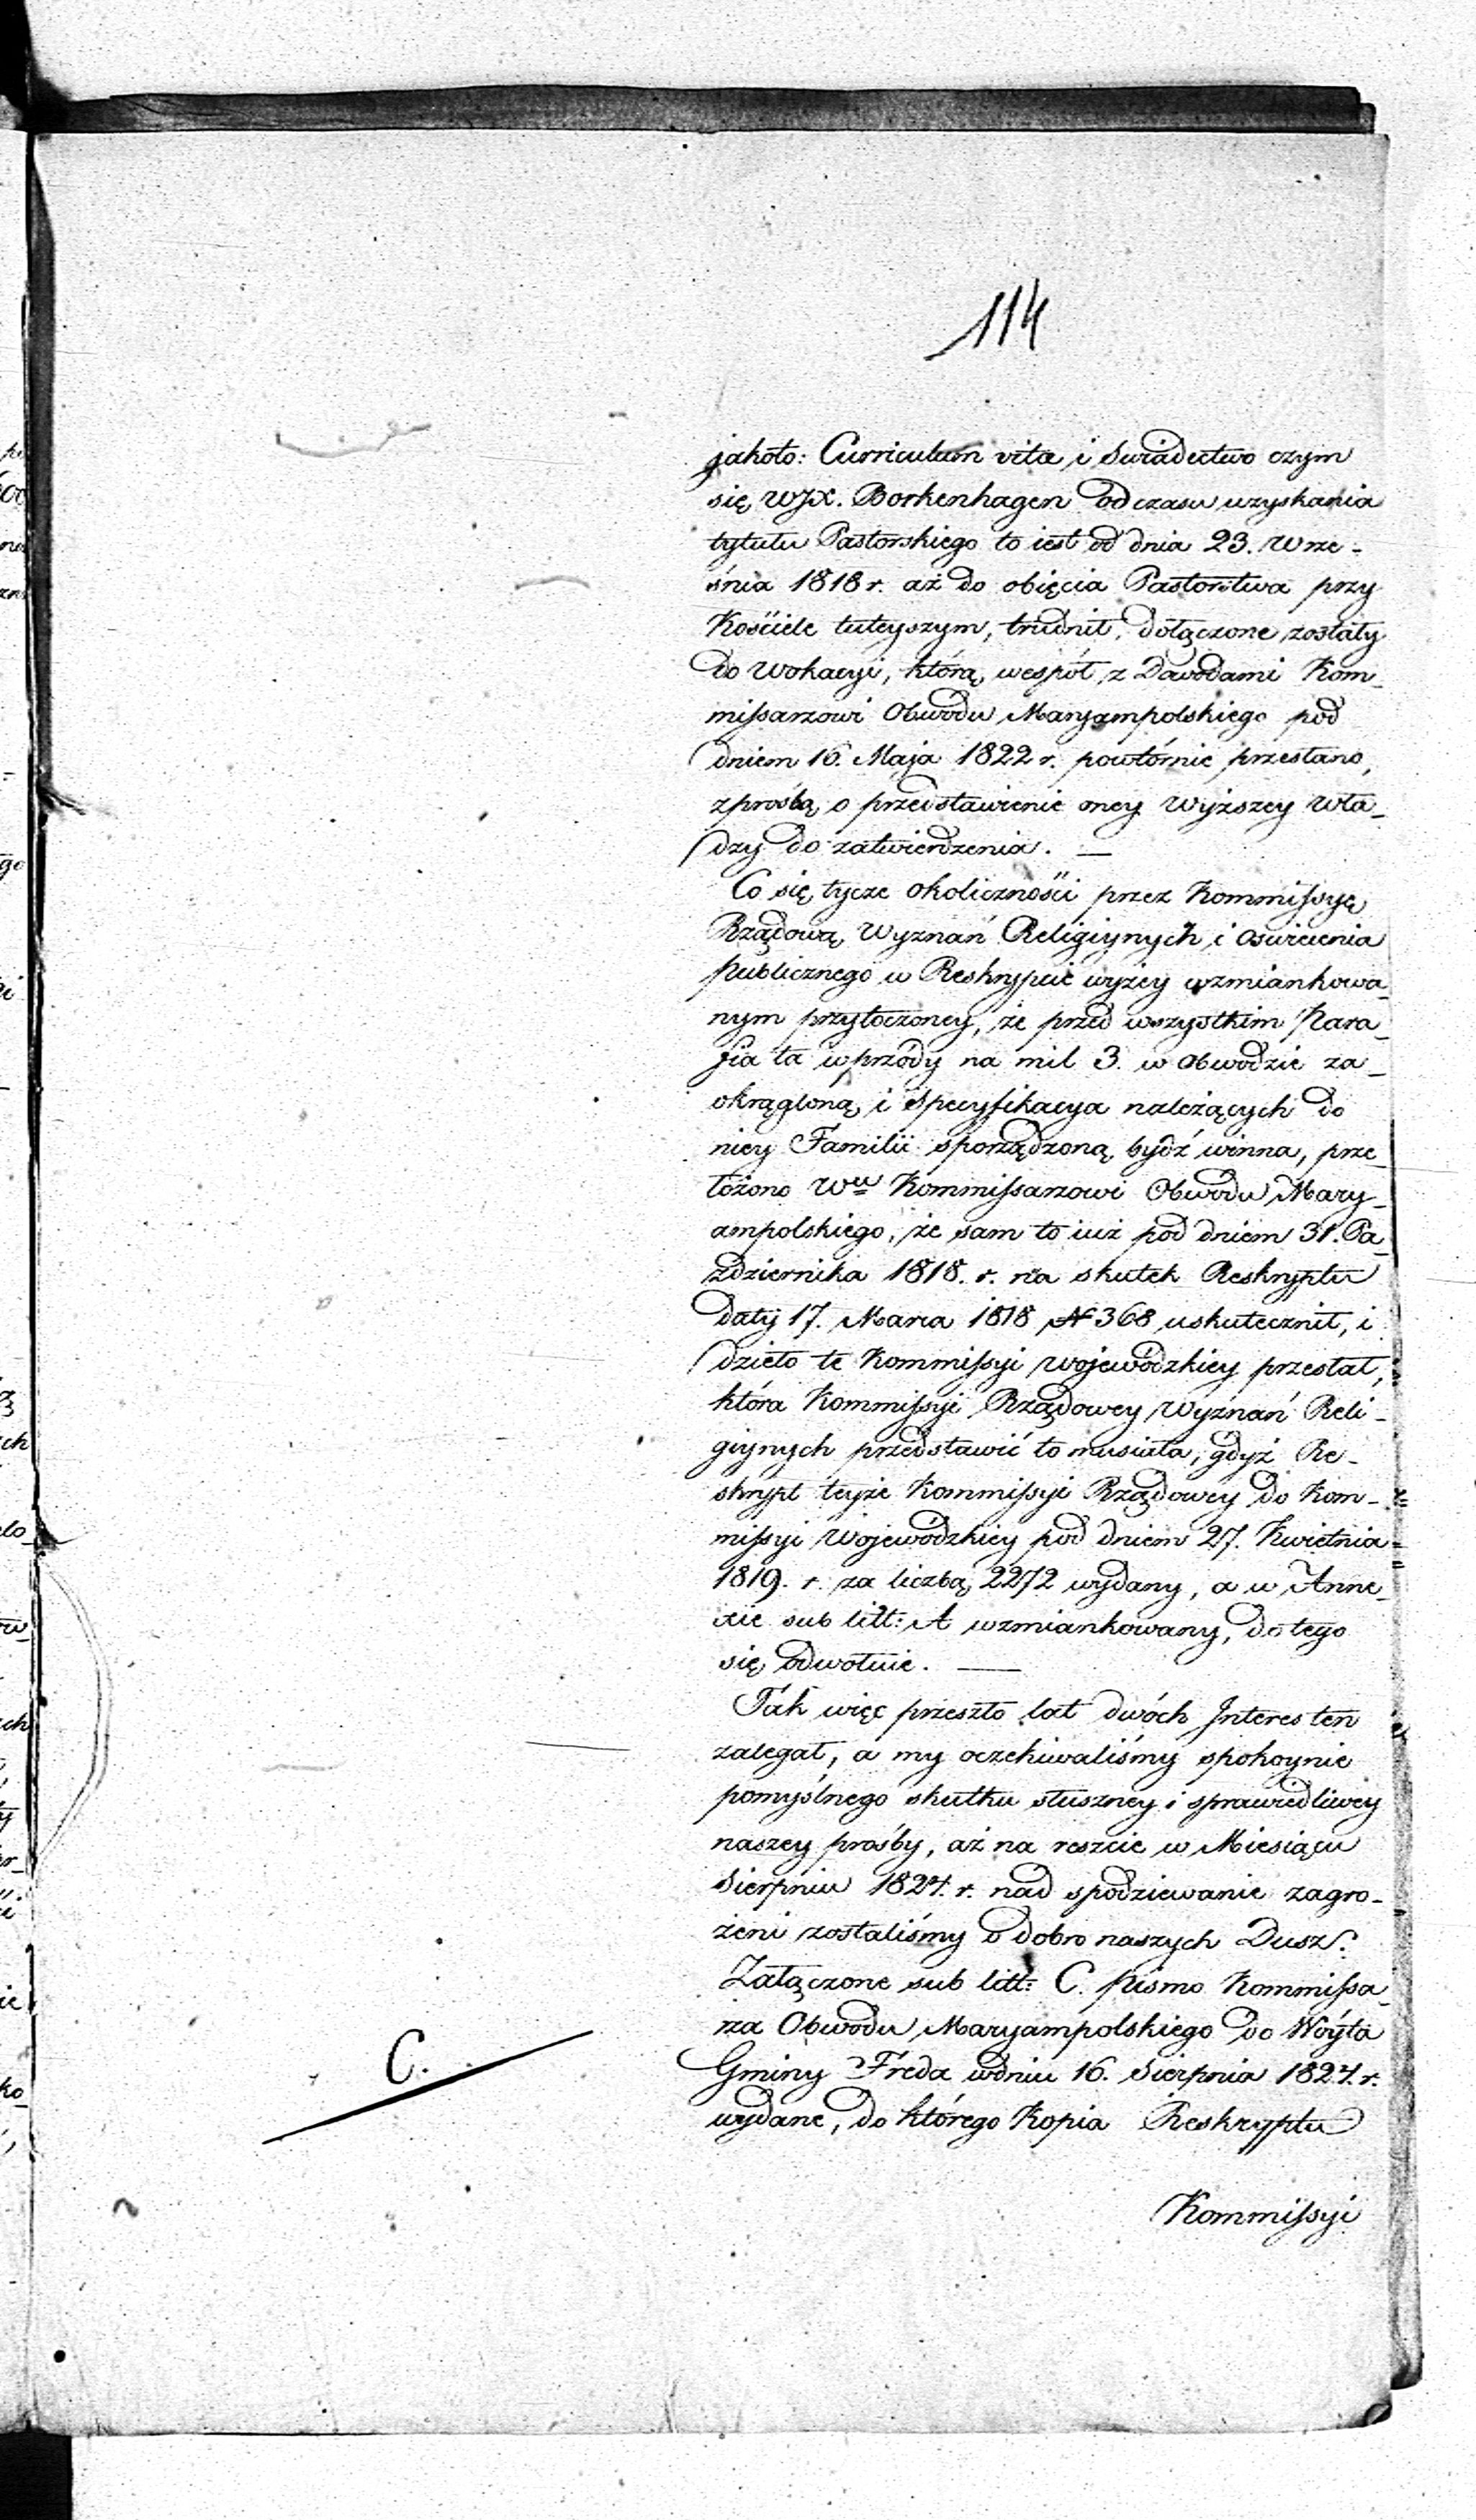 114
jakoto: Curriculum vitæ i Swiadectwo czym
się WJX. Borkenhagen od czasu uzyskania
tytułu Pastorskiego to iest od dnia 23. Wrze-
śnia 1818 r. aż do obięcia Pastorstwa przy
Kościele tuteyszym, trudnił, dołączone zostały
do Wokacyi, którą wespół z Dowodami Kom-
missarzowi Obwodu Maryampolskiego pod
dniem 16. Maja 1822 r. powtórnie przesłano,
z prośbą o przedstawienie oney Wyższey Wła-
dzy do zatwierdzenia. —
Co się tycze okoliczności przez Kommissyę
Rządową Wyznań Religiynych i oswiecenia
Publicznego w Reskrypcie wyżey wzmiankowa-
nym przytoczoney, że przed wszystkim Para-
fia ta wprzódy na mil 3. w obwodzie za-
okrągloną i Specyfikacya należących do
niey Familii sporządzoną bydź winna, prze-
łożono Wu Kommissarzowi Obwodu Mary-
ampolskiego, że sam to iuż pod dniem 31. Pa-
zdziernika 1818. r. na skutek Reskryptu
daty 17. Marca 1818 N 368 uskutecznił, i
dzieło te Kommissyi Wojewódzkiey przesłał,
która Kommissyi Rządowey Wyznań Reli-
giynych przedstawić to musiała, gdyż Re-
skrypt teyże Kommissyi Rządowey do Kom-
missyi Wojewódzkiey pod dniem 27. Kwietnia
1819. r. za liczbą 2272 wydany, a w Anne-
xie sub litt: A wzmiankowany, do tego
się odwołuie. —
Tak więc przeszło lat dwóch Interes ten
zalegał, a my oczekiwaliśmy spokoynie
pomyślnego skutku słuszney i sprawiedliwey
naszey prośby, aż na reszcie w Miesiącu
Sierpniu 1824. r. nad spodziewanie zagro-
żeni zostaliśmy o dobro naszych Dusz.
Załączone sub litt: C. pismo Kommissa-
rza Obwodu Maryampolskiego do Woyta
Gminy Freda w dniu 16. Sierpnia 1824. r.
wydane, do którego Kopia Reskryptu
C.
Kommissyi